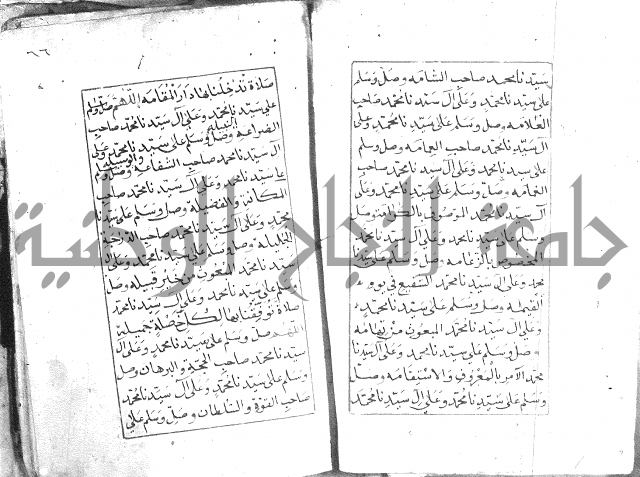 سيدنا محمد صاحب الشامه وصل وسلم
على سيدنا محمد وعلى آل سيدنا محمد صاحب
العلامه وصل وسلم على سيدنا محمد وعلى
آل سيدنا محمد صاحب العمامه وصل وسلم
على سيدنا محمد وعلى آل سيدنا محمد صاحب
وصل وسلم على سيدنا محمد وعلى
آل سيدنا محمد الموصوف وصل
وسلم على سيدنا محمد وعلى آل سيدنا محمد
بالزعامه وصل وسلم على سيدنا
محمد وعلى آل سيدنا محمد الشفيع في يوم
القيمه وصل وسلم على سيدنا محمد
وعلى آل سيدنا محمد المبعوث من تهامه
وصل وسلم على سيدنا محمد وعلى آل سيدنا
محمد الآمر بالمعروف والاستقامه وصل
وسلم على سيدنا محمد وعلى آل سيدنا محمد
٩٦
صلاة تدخلنا بها دار المقامه اللهم صل وسلم
على سيدنا محمد وعلى آل سيدنا محمد صاحب
وصل وسلم على سيدنا محمد وعلى
آل سيدنا محمد صاحب الشفاعه وصل وسلم
على سيدنا محمد وعلى آل سيدنا محمد صاحب
والفضيله وصل وسلم على سيدنا
محمد وعلى آل سيدنا محمد صاحب الدرجة
الجليله وصل وسلم على سيدنا محمد وعلى آل
سيدنا محمد المبعوث من خير قبيله وصل
وسلم على سيدنا محمد وعلى آل سيدنا محمد
صلاة توفقنا بها لكل خصلة جميله
اللهم صل وسلم على سيدنا محمد وعلى آل
سيدنا محمد صاحب الحجة والبرهان وصل
وسلم على سيدنا محمد وعلى آل سيدنا محمد
صاحب القوة والسلطان وصل وسلم على
جامعة النجاح الوطنية